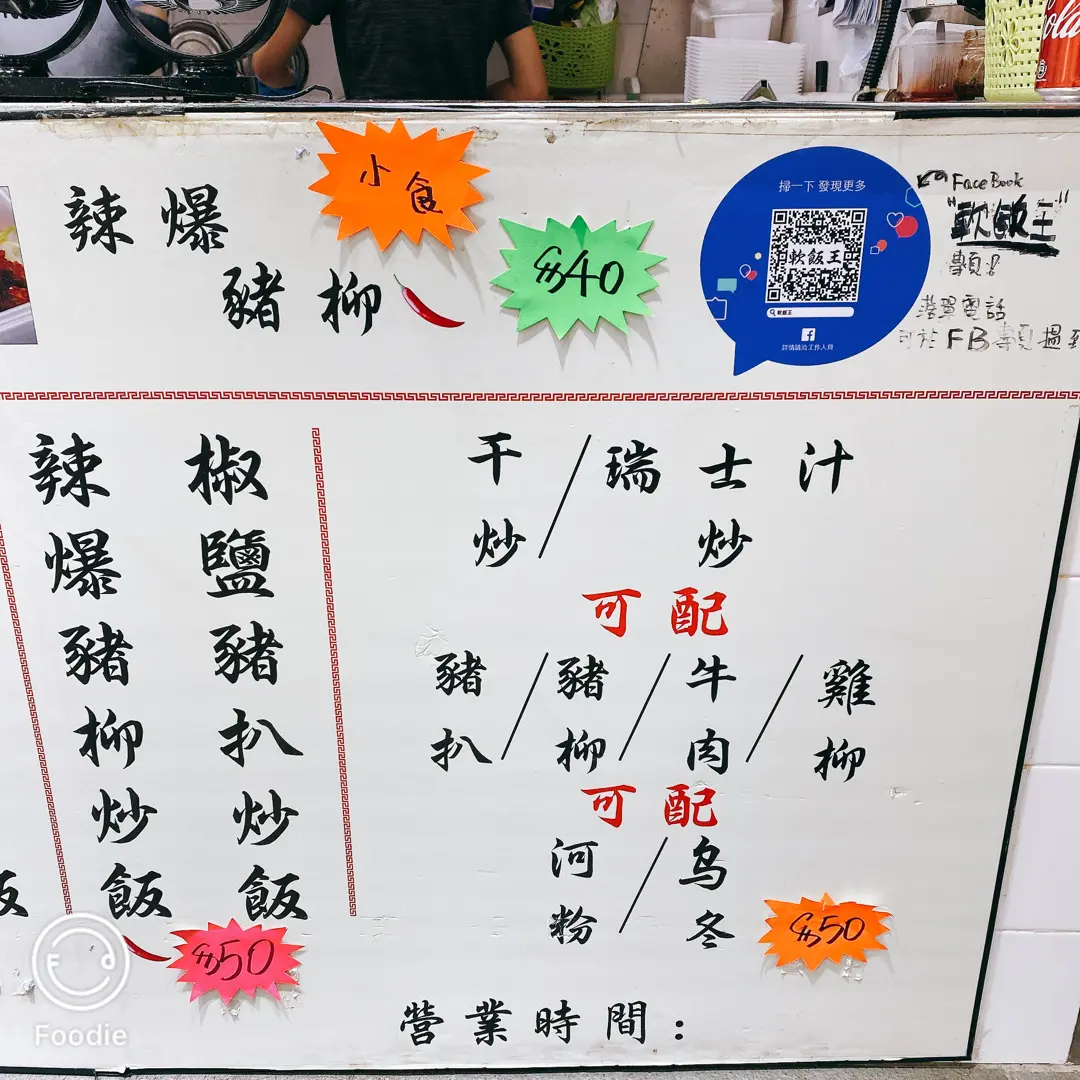 小食
辣爆
豬柳
$40
掃一下 發現更多
軟飯王
軟飯王
詳情請洽工作人員
FaceBook
"軟飯王"
專頁
電話
可於FB專頁
辣爆豬柳炒飯
椒鹽豬扒炒飯
$50
干炒/瑞士汁炒
可配
豬扒/豬柳/牛肉/雞柳
可配
河粉/乌冬
$50
營業時間：
Foodie